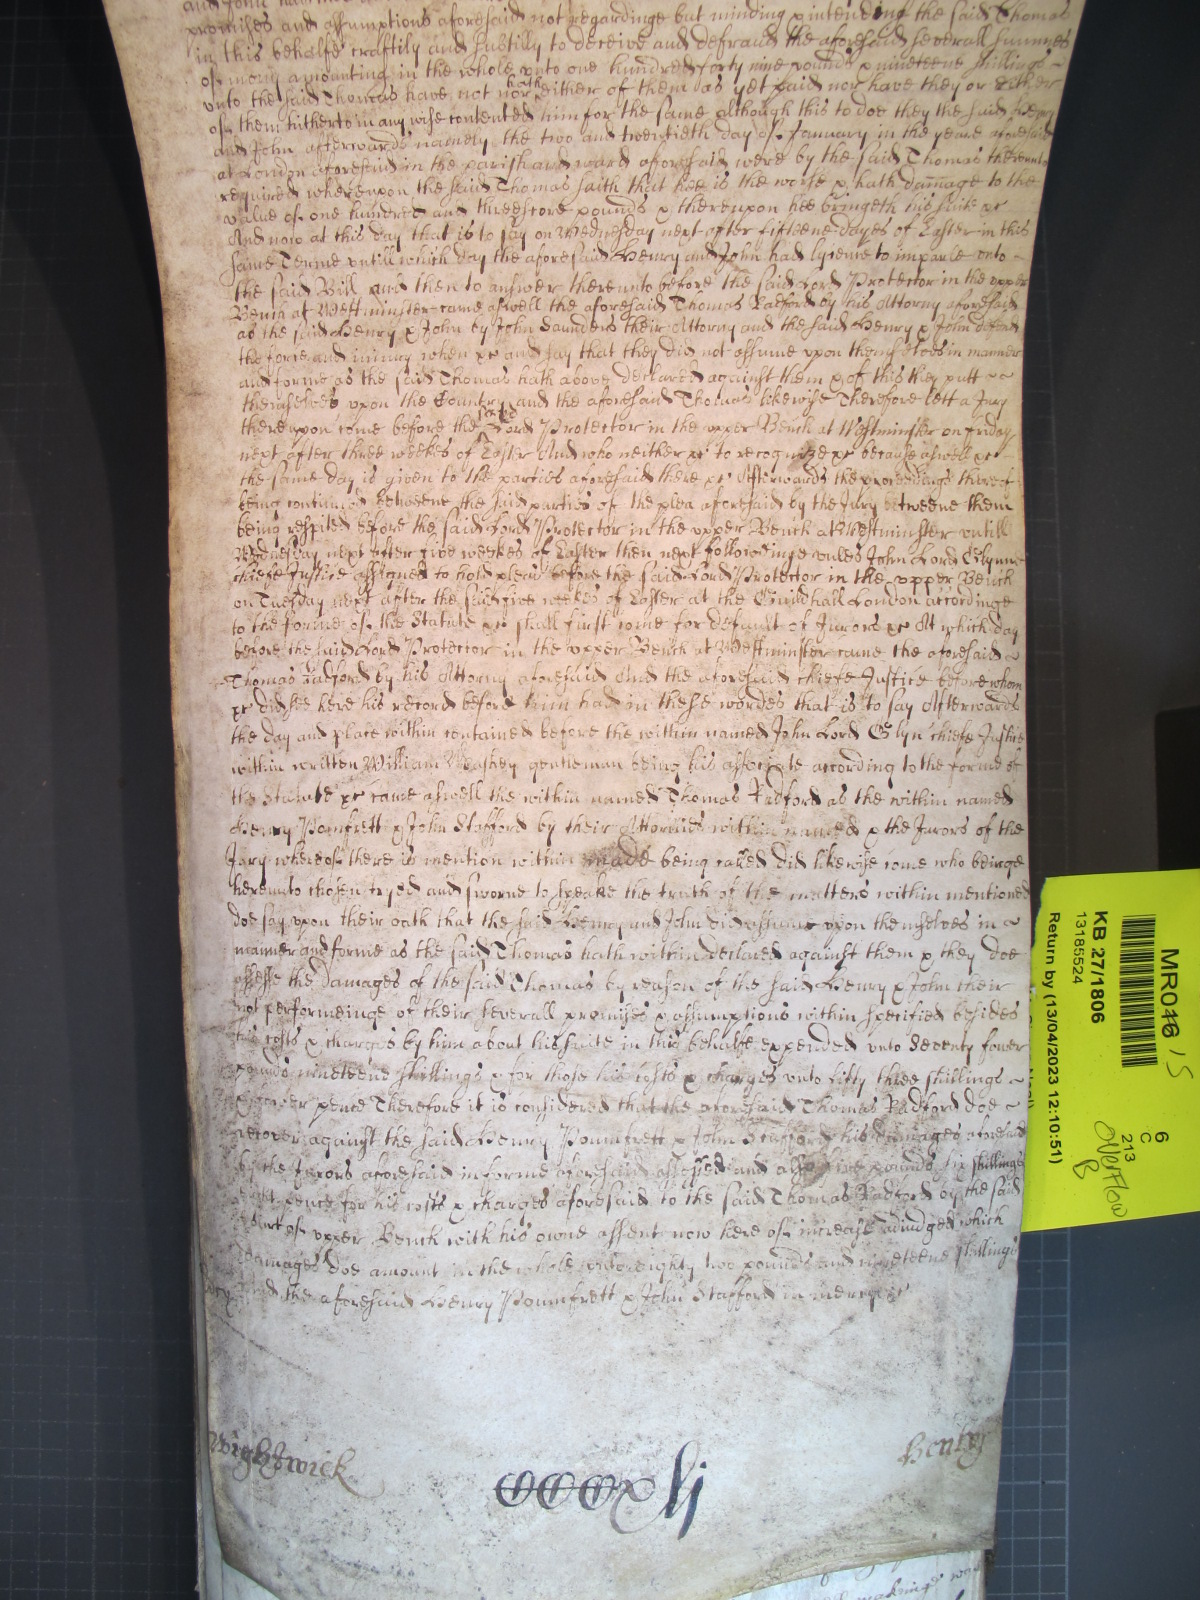 promises and assumptions aforesaid not regardinge but minding & intending the said Thomas
in this behalfe craftily and subtilly to deceive and defraud the aforesaid severall summes
of mony amounting in the whole unto one hundred forty nine pounds & nineteene shillings
unto the said Thomas have not nor hath either of them as yet paid nor have they or either
of them hitherto in any wise contented him for the same although this to doe they the said Henry
and John afterwards namely the two and twentieth day of January in the yeare aforesaid
at London aforesaid in the parish and ward aforesaid were by the said Thomas thereunto
required whereupon the said Thomas saith that hee is the worse & hath damage to the
value of one hundred and threescore pounds & thereupon hee bringeth his suite &c
And now at this day that is to say on Wednesday next after fifteene dayes of Easter in this
same Terme untill which day the aforesaid Henry and John had lycence to imparle unto
the said Bill and then to answer thereunto before the said Lord Protector in the upper
Bench at Westminster came aswell the aforesaid Thomas Radford by his Attorny aforesaid
as the said Henry & John by John Saunders their Attorny and the said Henry & John defend
the force and iniury when &c and say that they did not assume upon themselves in manner
and forme as the said Thomas hath above declared against them & of this they putt
themselves upon the Country and the aforesaid Thomas likewise Therefore lett a Jury
thereupon come before the said Lord Protector in the upper Bench at Westminster on Friday
next after three weekes of Easter And who neither &c to recognize &c because aswell &c
the same day is given to the parties aforesaid there &c Afterwards the proceedings thereof
being continued betweene the said parties of the plea aforesaid by the Jury betweene them
being respited before the said Lord Protector in the upper Bench at Westminster untill
Wednesday next after five weekes of Easter then next followinge unles John Lord Glynne
chiefe Justice assigned to hold pleas before the said Lord Protector in the upper Bench
on Tuesday next after the said five weekes of Easter at the Guildhall London accordinge
to the forme of the Statute &c shall first come for default of Jurors &c At which day
before the said Lord Protector in the upper Bench at Westminster came the aforesaid
Thomas Radford by his Attorny aforesaid And the aforesaid chiefe Justice before whom
&c did send here his record before him had in these wordes that is to say Afterwards
the day and place within contained before the within named John Lord Glyn chiefe Justice
within written William gentleman being his associate according to the forme of
the Statute &c came aswell the within named Thomas Radford as the within named
Henry Poumfrett & John Stafford by their Attornies within named & the Jurors of the
Jury whereof there is mention within made being called did likewise come who beinge
hereunto chosen tryed and sworne to speake the truth of the matters within mentioned
doe say upon their oath that the said Henry and John did assume upon themselves in
manner and forme as the said Thomas hath within declared against them & they doe
assesse the damages of the said Thomas by reason of the said Henry & John their
not performeinge of their severall promises & assumptions within specified besides
his costs & charges by him about his suite in this behalfe expended unto seventy fower
pounds nineteene shillings & for those his costs & charges unto fifty three shillings
& fower pence Therefore it is considered that the aforesaid Thomas Radford doe
recover against the said Henry Poumfrett & John Stafford his damages aforesaid
by the Jurors aforesaid in forme aforesaid assessed and also five pounds six shillings
eight pence for his costs & charges aforesaid to the said Thomas Radford by the said
Court of upper Bench with his owne assent now here of increase adiudged which
damages doe amount in the whole unto eighty two pounds and nineteene shillings
And the aforesaid Henry Poumfrett & John Stafford in mercy &c
Wightwick
Henley
CCCXLj
MR046
15
KB 27/1806
13185524
Return by (13/04/2023 12:10:51)
6
C
213
Overflow
B